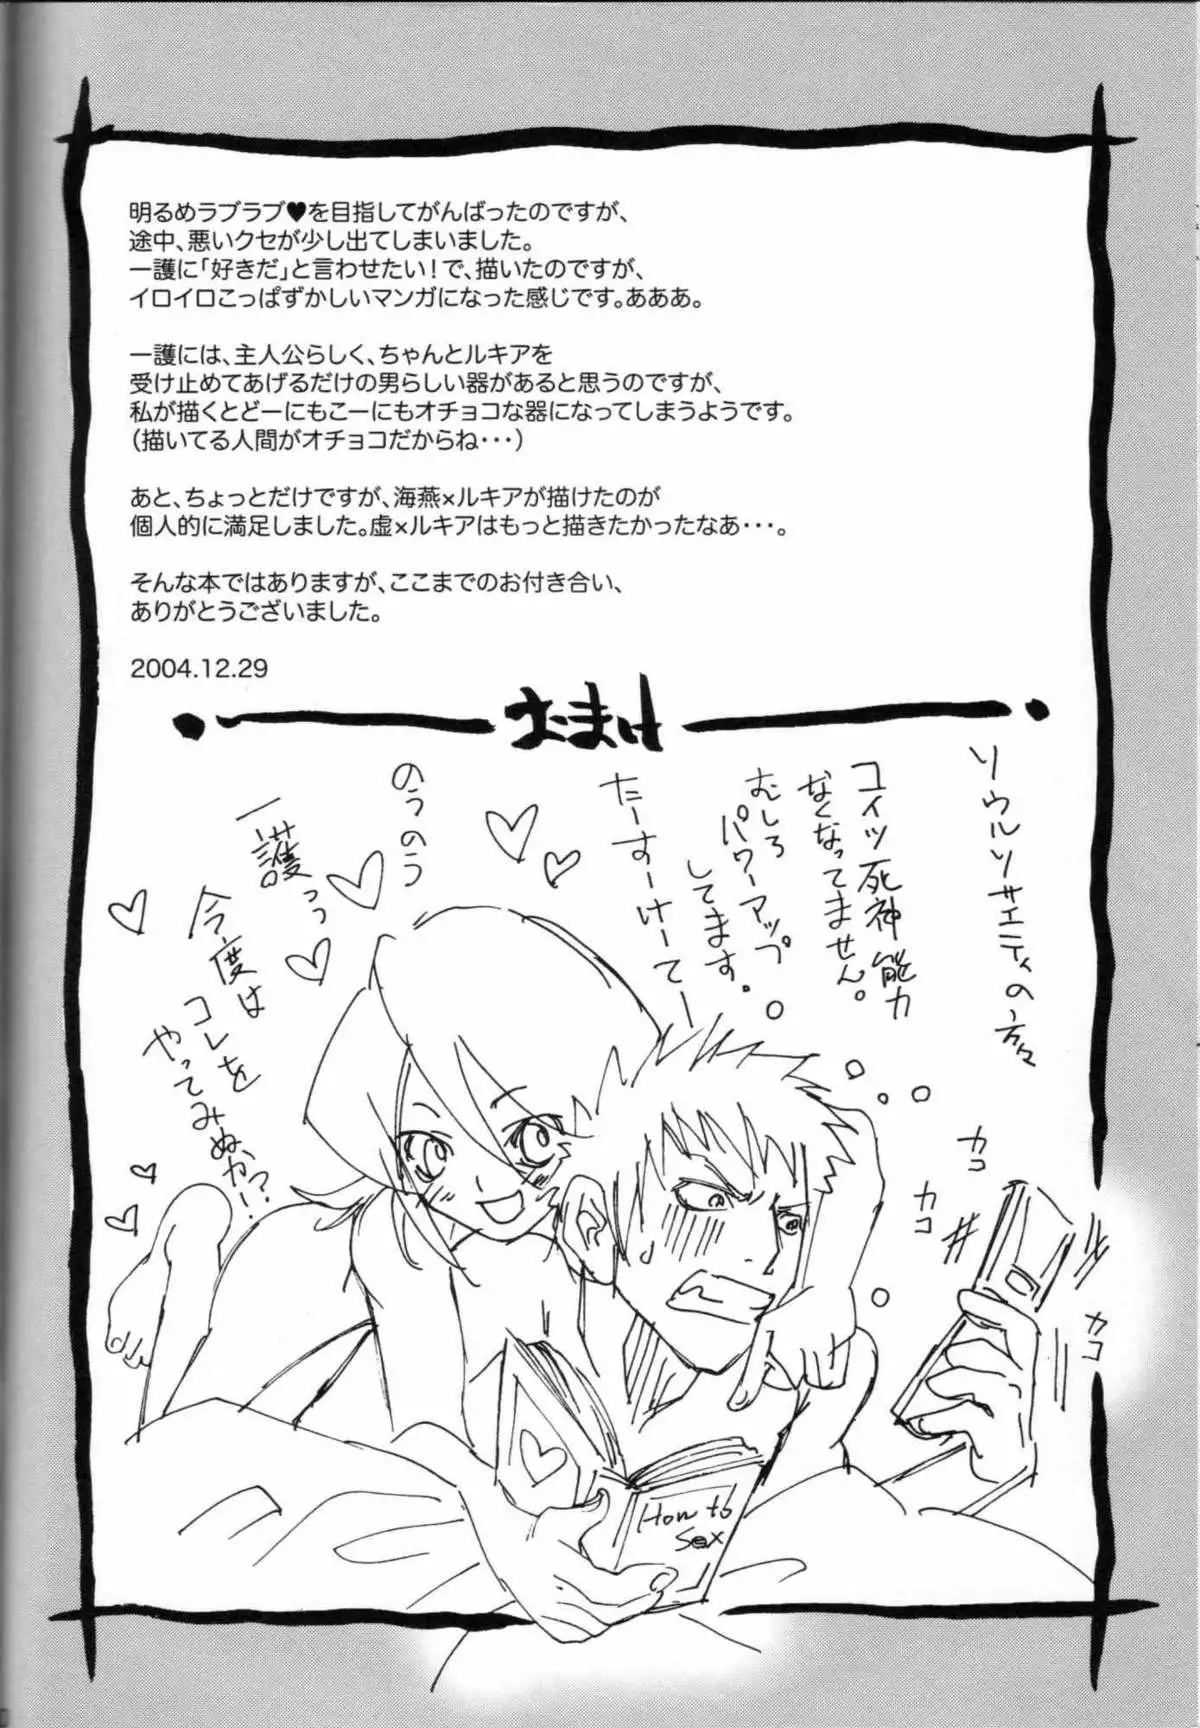 明るめラブラブ♥を目指してがんばったのですが、
途中、悪いクセが少し出てしまいました。
一護に「好きだ」と言わせたい！で、描いたのですが、
イロイロこっぱずかしいマンガになった感じです。あああ。
一護には、主人公らしく、ちゃんとルキアを
受け止めてあげるだけの男らしい器があると思うのですが、
私が描くとどーにもこーにもオチョコな器になってしまうようです。
（描いてる人間がオチョコだからね・・・）
あと、ちょっとだけですが、海燕×ルキアが描けたのが
個人的に満足しました。虚×ルキアはもっと描きたかったなあ・・・。
そんな本ではありますが、ここまでのお付き合い、
ありがとうございました。
2004.12.29
おまけ
ソウルソサエティの方々
コイツ死神能力
なくなってません。
むしろ
パワーアップ
してます。
たーすーけーてー
のうのう
一護っっ
今度は
コレを
やってみぬか！？
カコ
カコ
カコ
How to
Sex